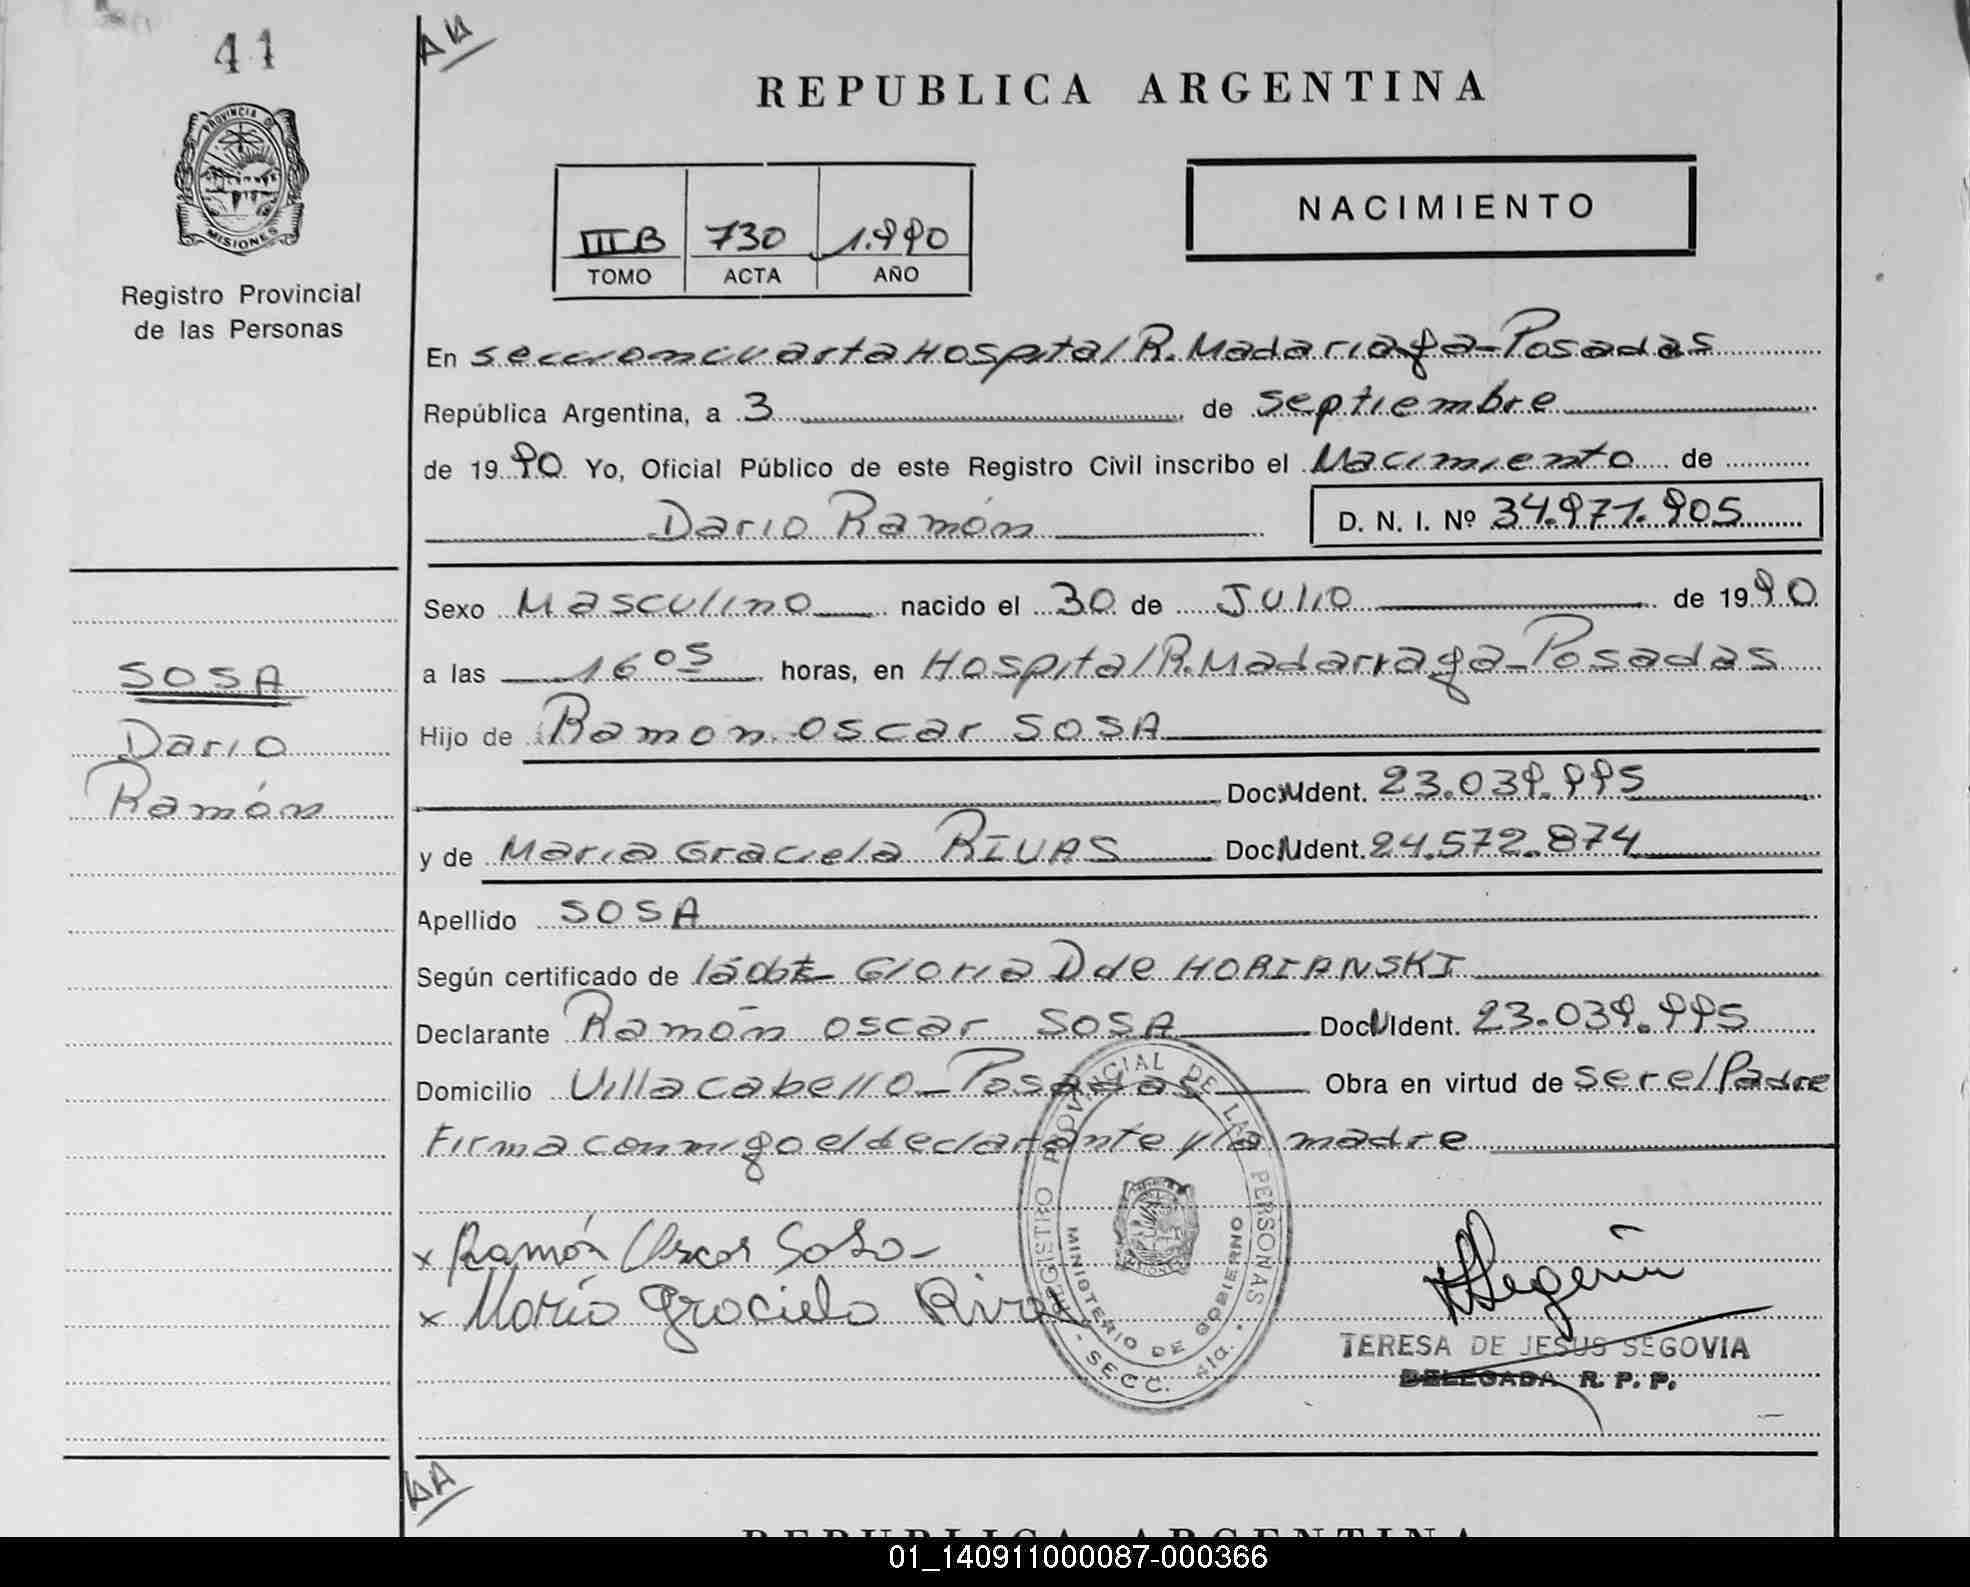 41
AU
REPUBLICA ARGENTINA
PROVINCIA DE
MISIONES
Registro Provincial
de las Personas
IIIB 730 1.990
TOMO ACTA AÑO
NACIMIENTO
En seccion cuarta Hospital R. Madariaga - Posadas
República Argentina, a 3 de septiembre
de 1990 Yo, Oficial Público de este Registro Civil inscribo el Nacimiento de
Dario Ramón D. N. I. Nº 34.971.905
Sexo Masculino nacido el 30 de Julio de 1990
a las 16 05 horas, en Hospital R. Madariaga - Posadas
Hijo de Ramon Oscar SOSA
Doc. Ident. 23.039.995
y de Maria Graciela RIVAS Doc. Ident. 24.572.874
Apellido SOSA
Según certificado de la obt- Gloria D de HORIANSKI
Declarante Ramón Oscar SOSA Doc. Ident. 23.039.995
Domicilio Villa cabello - Posadas Obra en virtud de ser el Padre
Firma conmigo el declarante y la madre
SOSA
Dario
Ramón
x Ramón Oscar Sosa-
x María Graciela Rivas
REGISTRO PROVINCIAL DE LAS PERSONAS
MINISTERIO DE GOBIERNO
- SECC. 4ta. -
TERESA DE JESUS SEGOVIA
DELEGADA R. P. P.
AA
REPUBLICA ARGENTINA
01_140911000087-000366